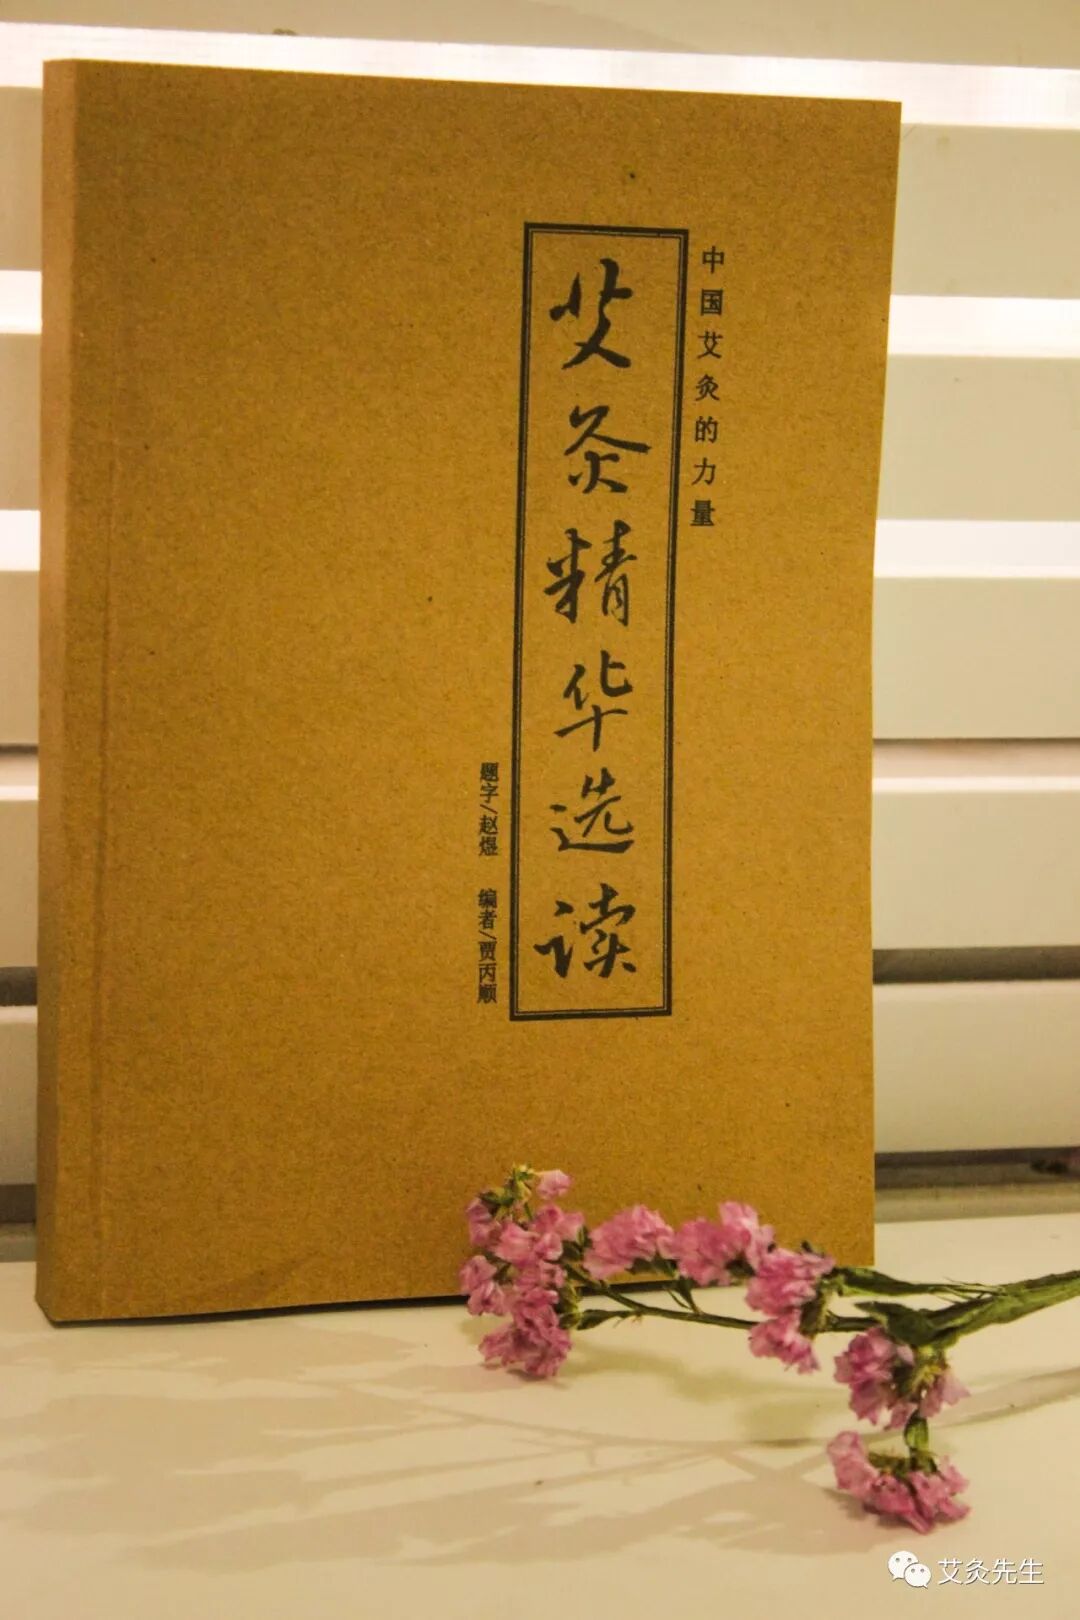 中国艾灸的力量
艾灸精华选读
题字/赵煜 编者/贾丙顺
艾灸先生